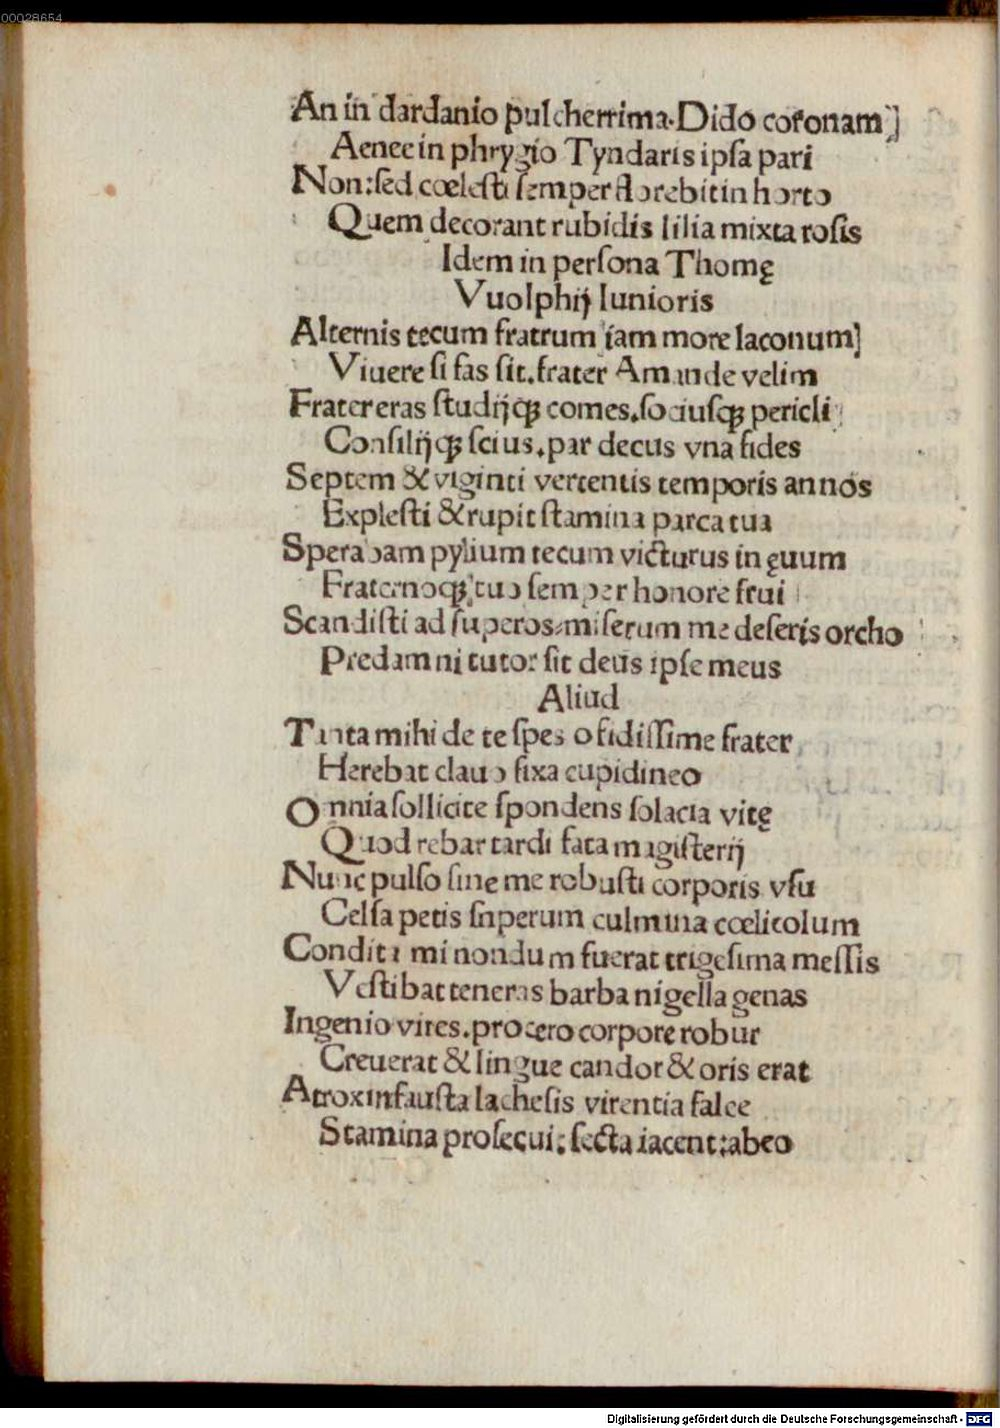 00028654
An in dardanio pulcherrima.Dido coronam]
Aenee in phrygio Tyndaris ipſa pari
Non:ſed cœleſti ſemper florebit in horto
Quem decorant rubidis lilia mixta roſis
Idem in perſona Thomę
Vuolphij Iunioris
Alternis tecum fratrum iam more laconum]
Viuere ſi fas ſit.frater Amande velim
Frater eras ſtudijqꝫ comes.ſociuſqꝫ pericli
Conſilijqꝫ ſcius.par decus vna fides
Septem & viginti vertentis temporis annos
Expleſti & rupit ſtamina parca tua
Sperabam pylium tecum victurus in ęuum
Fraternoqꝫ tuo ſemper honore frui
Scandiſti ad ſuperos:miſerum me deſeris orcho
Predam ni tutor ſit deus ipſe meus
Aliud
Tanta mihi de te ſpes o fidiſſime frater
Herebat clauo fixa cupidineo
Omnia ſollicite ſpondens ſolacia vitę
Quod rebar tardi fata magiſterij
Nunc pulſo ſine me robuſti corporis vſu
Celſa petis ſuperum culmina cœlicolum
Condita mi nondum fuerat trigeſima meſſis
Veſtibat teneras barba nigella genas
Ingenio vires.procero corpore robur
Creuerat & lingue candor & oris erat
Atrox infauſta lacheſis virentia falce
Stamina proſecui: ſecta iacent:abeo
Digitalisierung gefördert durch die Deutsche Forschungsgemeinschaft - DFG